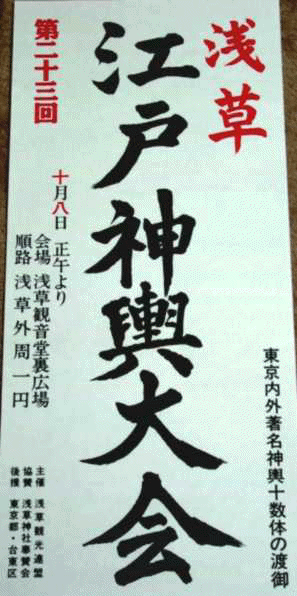 浅草
江戸神輿大会
東京内外著名神輿十数体の渡御
第二十三回
十月八日 正午より
会場 浅草観音堂裏広場
順路 浅草外周一円
主催 浅草観光連盟
協賛 浅草神社奉賛会
後援 東京都・台東区